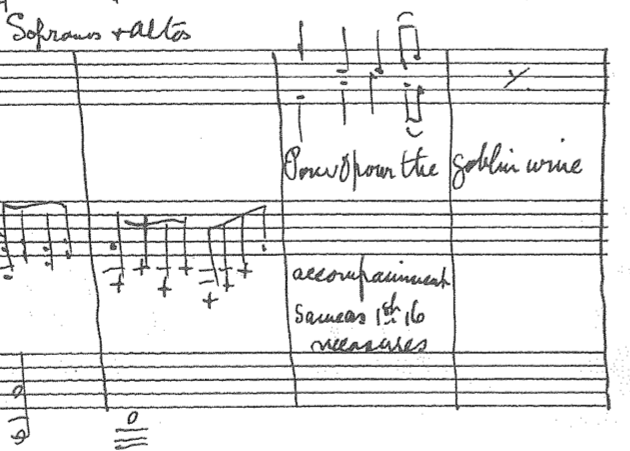 Sopranos + altos
Pour O pour the goblin wine
accompaniment
Same as 1st 16
measures